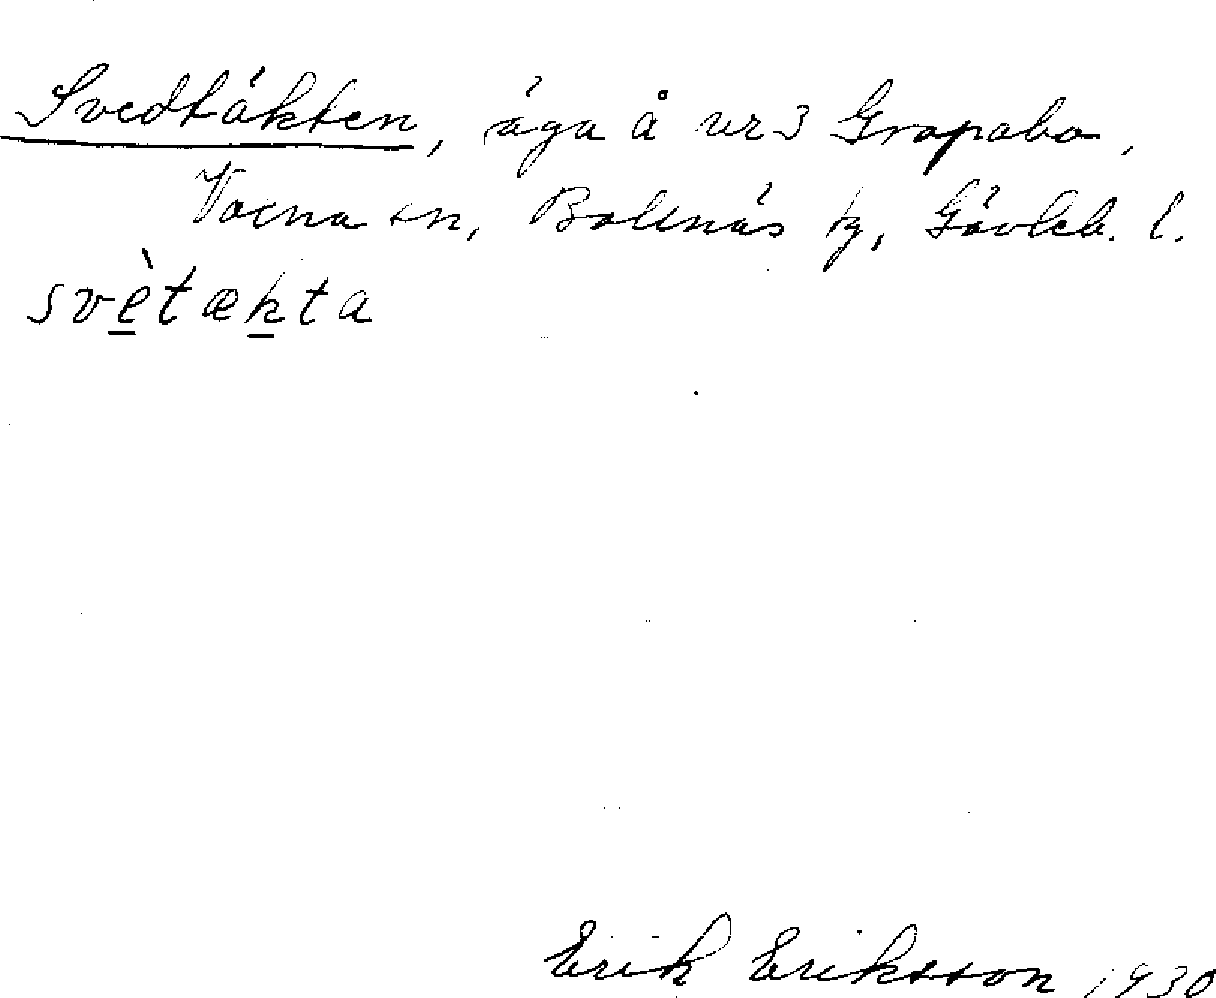 Svedtäkten, äga å nr 3 Gropabo,
Voxna sn, Bollnäs tg, Gävleb. l.
svètækta
Erik Eriksson 1930